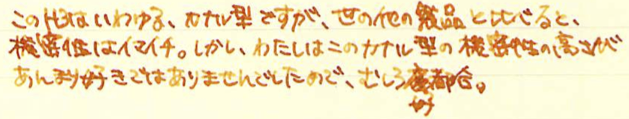 この他はいわゆる、カナル型ですが、世の他の製品と比べると、
機密性はイマイチ。しかし、わたしはこのカナル型の機密性の高さが
あんまり好きではありませんでしたので、むしろ都合。
好